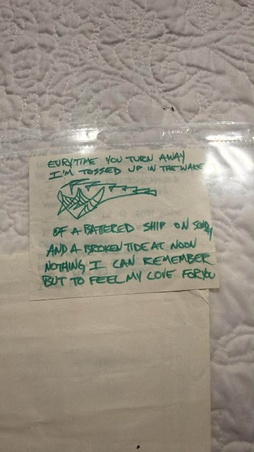 EURYTIME YOU TURN AWAY
I'M TOSSED UP IN THE WAKE
OF A BATERED SHIP ON
AND A BROKEN TIDE AT NOON
NOTHING I CAN REMEMBER
BUT TO FEEL MY LOVE FOR YOU